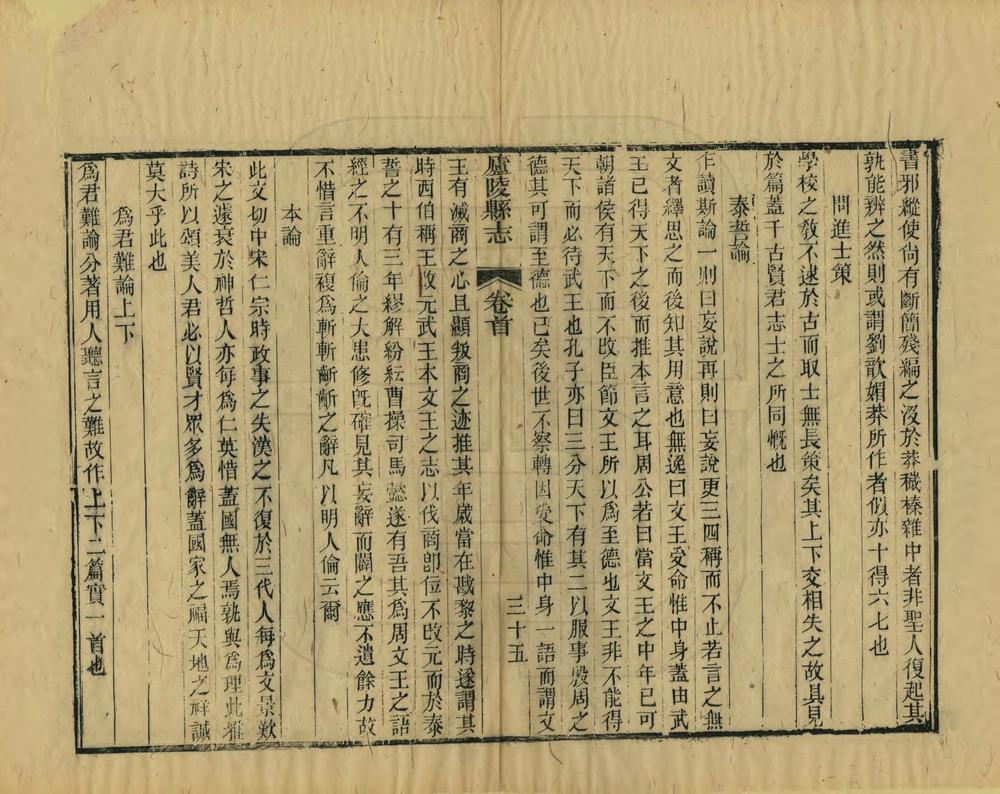 書邪縱使尚有斷簡殘編之沒於莽穢榛雜中者非聖人復起其
孰能辨之然則或謂劉歆媚莽所作者似亦十得六七也
問進士策
學校之敎不逮於古而取士無長策矣其上下交相失之故具見
於篇蓋千古賢君志士之所同慨也
泰誓論
乍讀斯論一則曰妄說再則曰妄說更三四稱而不止若言之無
文者繹思之而後知其用意也無逸曰文王受命惟中身蓋由武
王已得天下之後而推本言之耳周公若曰當文王之中年已可
朝諸侯有天下而不改臣節文王所以爲至德也文王非不能得
天下而必待武王也孔子亦曰三分天下有其二以服事殷周之
德其可謂至德也已矣後世不察轉因受命惟中身一語而謂文
廬陵縣志 卷首 三十五
王有滅商之心且顯叛商之迹推其年歲當在戡黎之時遂謂其
時西伯稱王改元武王本文王之志以伐商卽位不改元而於泰
誓之十有三年繆解紛紜曹操司馬懿遂有吾其爲周文王之語
經之不明人倫之大患修旣確見其妄辭而闢之應不遺餘力故
不惜言重辭複爲斬斬齗齗之辭凡以明人倫云爾
本論
此文切中宋仁宗時政事之失漢之不復於三代人每爲文景歎
宋之遽衰於神哲人亦每爲仁英惜蓋國無人焉孰與爲理此雅
詩所以頌美人君必以賢才眾多爲辭蓋國家之福天地之祥誠
莫大乎此也
爲君難論上下
爲君難論分著用人聽言之難故作上下二篇實一首也